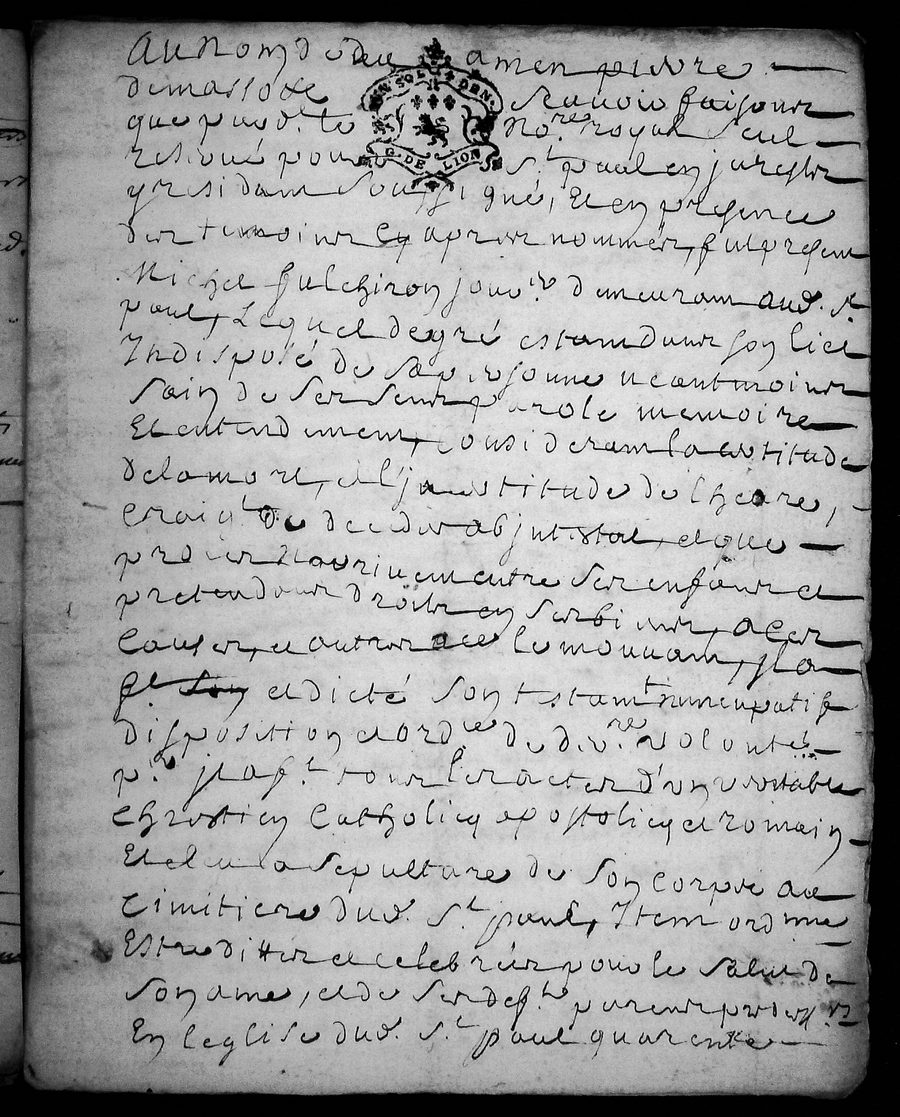 Au Nom de dieu amen pierre
demassore Scavoir faisons
UN SOL 4 DEN.
G. DE LION
que pard.t le No.re royal Seul
reservé pour S.t paul en jarestz
y residam Soussigné, Et en presence
des temoins Cy apres nommés, fut present
Michel fulchiron jour.r demeuram aud. S.t
paul, Lequel de gré estam dans son lict
Indisposé de sa personne neantmoins
Sain de Ses Sens parole memoire
Et entendement, consideram la certitude
de la mort, et l'incertitude de l'heure,
Craig.t de deceder abjntestat, et que
procès N'arrivem entre Ses enfans et
pretendans droits en Ses biens, a Ces
Causes, et autres a ce le mouvam, jl a
f.t Son et dicté Son testam.t nuncupatif
disposition et ord.ce de der.re volonté
p.r jl a f.t tous les actes d'un veritable
Chrestien Catholicq apostolicq et romain
Et eleu a Sepulture de Son Corps au
Cimitiere dud. S.t paul, Item ordonne
Estre dittes et celebrées pour le Salut de
Son ame, et de Ses def.ts parens
En leglise dud. S.t paul quarente